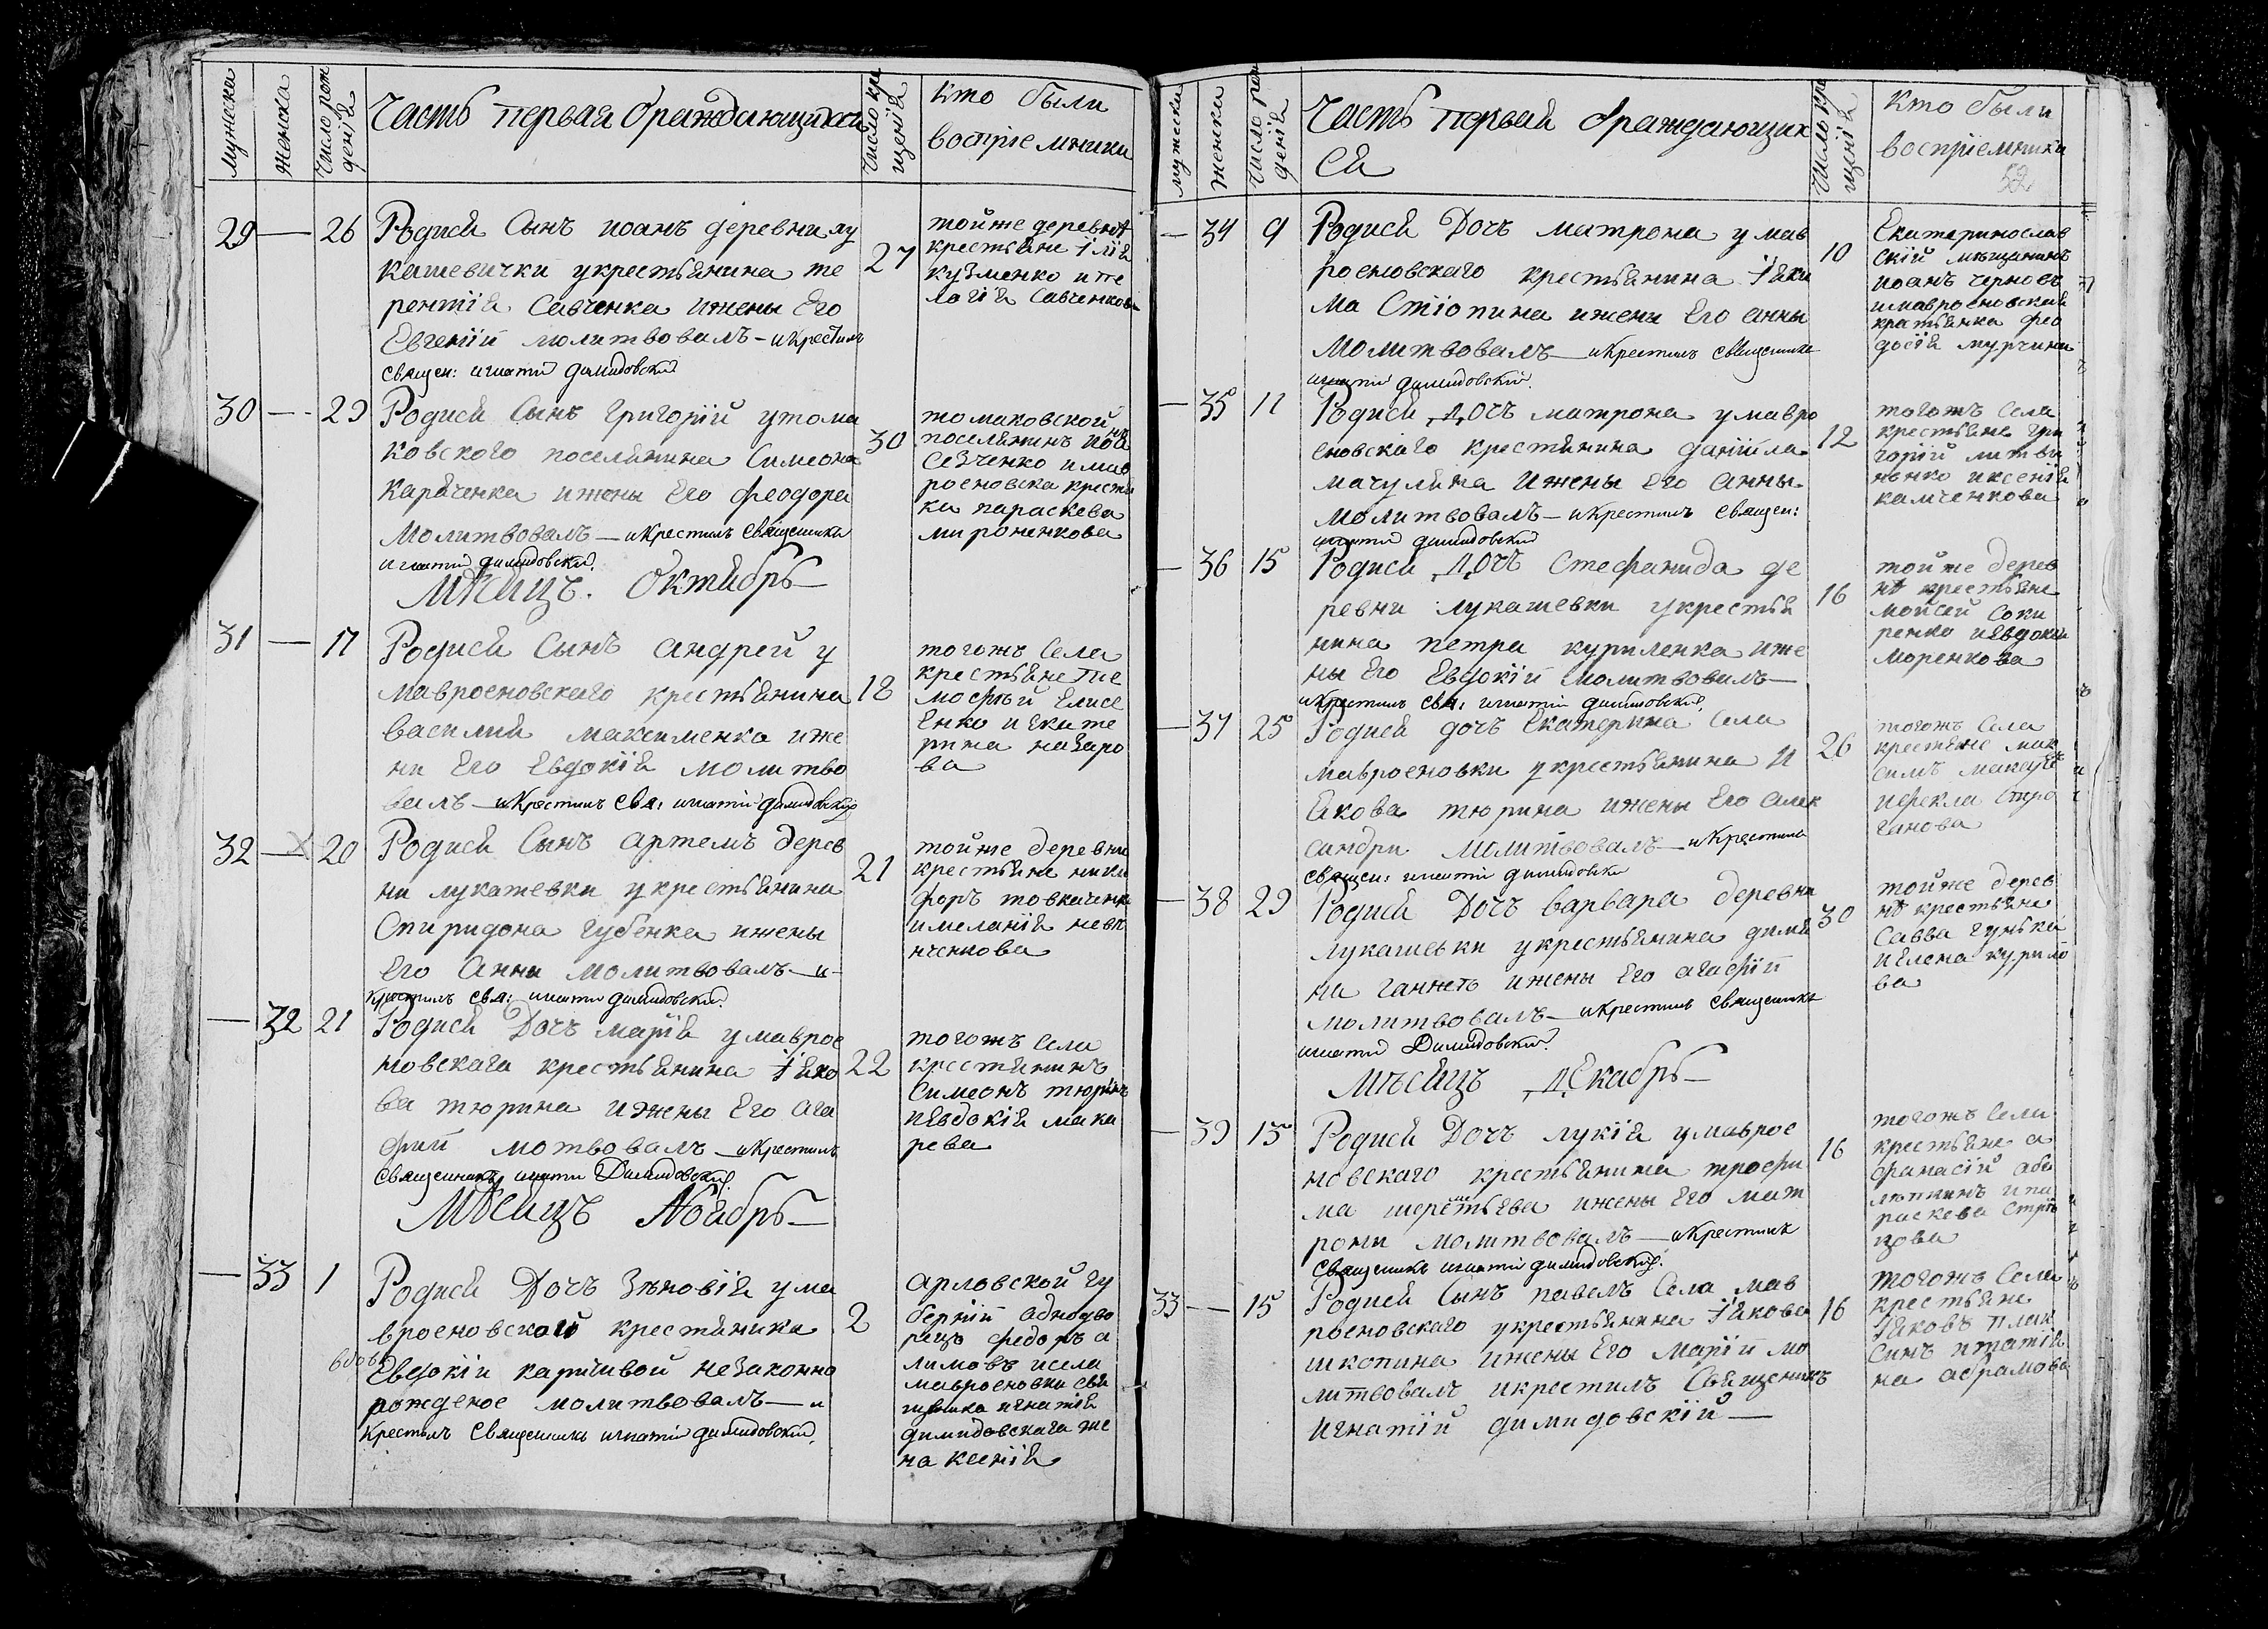 Мужеска
Женска
Число рож
денія
Часть первая ораждающихся
Число кр
щенія
Кто были
воспріемники
29 — 26
Родися Сынъ иоанъ деревни лу
кашевички укрестьянина те
рентія Савченка ижены Его
Евгеніи молитвовалъ – икрестилъ
священ: игнатій димидовскій
27
тойже деревнѣ
крестьяне Ілія
кузменко ипе
лагія Савченкова
30 — 29
Родися Сынъ григорій утома
ковского поселянина Симеона
Караченка ижены Его феодора
Молитвовалъ — икрестилъ Священникъ
игнатій димидовскій.
30
томаковской
поселянинъ иоа
нъ
Севченко имав
роеновска крестя
ка параскева
мироненкова
Мѣсяцъ. Октябрь —
31 — 17
Родися Сынъ андрей у
мавроеновскаго крестьянина
василия максименка иже
ни Его Евдокія молитво
валъ — икрестилъ Свя: игнатій димидовскій
18
тогожъ Села
крестьяне ти
мофѣй Елисе
Енко иекате
рина назаро
ва
32 — 20
Родися Сынъ артемъ дерев
ни лукашевки укрестьянина
Спиридона губенка ижены
Его Анни молитвовалъ — и
крестилъ Свя: игнатій димидовскій.
21
тойже деревни
крестьяне ники
форъ товкаченк
имеланія невѣ
нченкова
— 32 21
Родися Дочъ марія умаврое
новскага крестьянина Іяко
ва тюрина ижены Его ага
фіи мотвовалъ — икрестилъ
Священникъ игнатій Димидовскій.
22
тогожъ Села
крестянинъ
Симеонъ тюринъ
иевдокія мака
рева
Мѣсяцъ Ноябрь —
— 33 1
Родися Дочъ Зѣновія ума
вроеновской крестяники
вдов
Евдокіи каришвой незаконно
рожденое молитвовалъ — и
крестилъ Священникъ игнатій димидовскій.
2
арловской гу
берніи аднодво
рецъ федоръ а
лимовъ исела
мавроеновки свя
щеника игнатія
димидовскага же
на ксенія
мужески
женски
Число рож
денія
Часть первая ораждающих
ся
Число кре
щенія
Кто были
воспріемники
52
— 34 9
Родися Дочъ матрона умав
роеновскаго крестьянина Іяки
ма Стіопина ижены Его анны
Молитвовалъ — икрестилъ священникъ
игнатій димидовскій.
10
Екатеринослав
скій мѣщанинъ
иоанъ черновъ
имавроеновская
кратьянка фео
досія мурчина
— 35 11
Родися Дочъ матрона умавро
еновскаго крестянина даніила
мачулина ижены Его анны
молитвовалъ — икрестилъ священ:
игнатій димидовскій
12
тогожъ Села
крестьяне гри
горій литви
ненко иксенія
камченкова
— 36 15
Родися Дочъ Стефанида де
ревни лукашевки укрестья
нина петра куриленка иже
ны Его Евдокіи молитвовалъ —
икрестилъ Свя: игнатій димидовскій.
16
тойже дерев
нѣ крестьяне
мойсей Соки
ренко иевдокия
моренкова
— 37 25
Родися дочъ Екатерина Села
мавроеновки укрестьянина И
Якова тюрина ижены Его алек
сандри молитвовалъ — икрестилъ
священ: игнатій димидовски
26
тогожъ Села
крестьяне мак
симъ макарѣ
ифекла Стро
ганова
— 38 29
Родися Дочъ варвара деревни
лукашевки укрестьянина дамя
на ганнеть ижены Его агафіи
молитвовалъ — икрестилъ Священникъ
игнатій Димидовскій.
30
тойже дерев
нѣ крестьяне
Савва гунька
иелена курило
ва
Мѣсяцъ Декабрь —
— 39 15
Родися Дочъ лукія умаврое
новскаго крестьянина трофи
ма шереметьева ижены Его мат
рони молитвовалъ — икрестилъ
Священникъ игнатій димидовскій.
16
тогожъ Села
крестьяне а
фанасій або
лѣпкинъ ипа
раскева Стрѣ
цова
33 — 15
Родися Сынъ павелъ Села мав
роеновскаго укрестьянина Іякова
шкопина ижены Его Маріи мо
литвовалъ икрестилъ Священикъ
игнатій димидовскій —
16
тогожъ Села
крестьяне
Іяковъ плак
синъ итатія
на абрамова